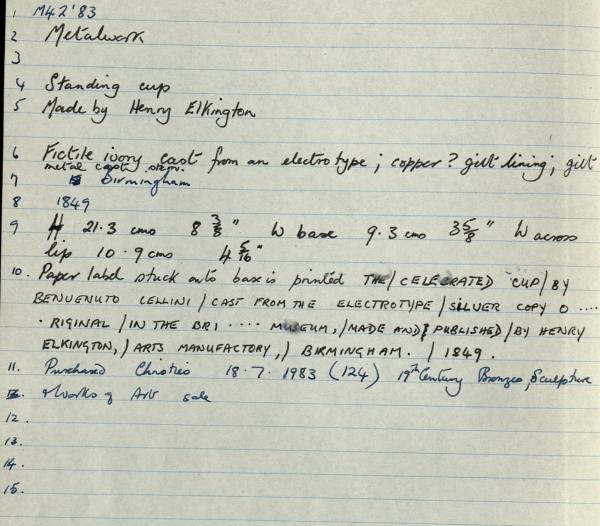 1 M42'83
2 Metalwork
3
4 Standing cup
5 Made by Henry Elkington
6 Fictile ivory cast from an electrotype; copper? gilt lining; gilt
metal cast stem.
7 Birmingham
8 1849
9 H 21.3 cms 8 3/8" W base 9.3 cms 3 5/8" W across
lip 10.9 cms 4 5/16"
10. Paper label stuck onto base is printed THE/CELEBRATED CUP/BY
BENVENUTO CELLINI/CAST FROM THE ELECTROTYPE/SILVER COPY O ....
. RIGINAL/IN THE BRI .... MUSEUM,/MADE AND PUBLISHED/BY HENRY
ELKINGTON,/ARTS MANUFACTORY,/BIRMINGHAM. /1849.
11. Purchased Christies 18.7.1983 (124) 19th Century Bronzes, Sculpture
& Works of Art sale
12.
13.
14.
15.